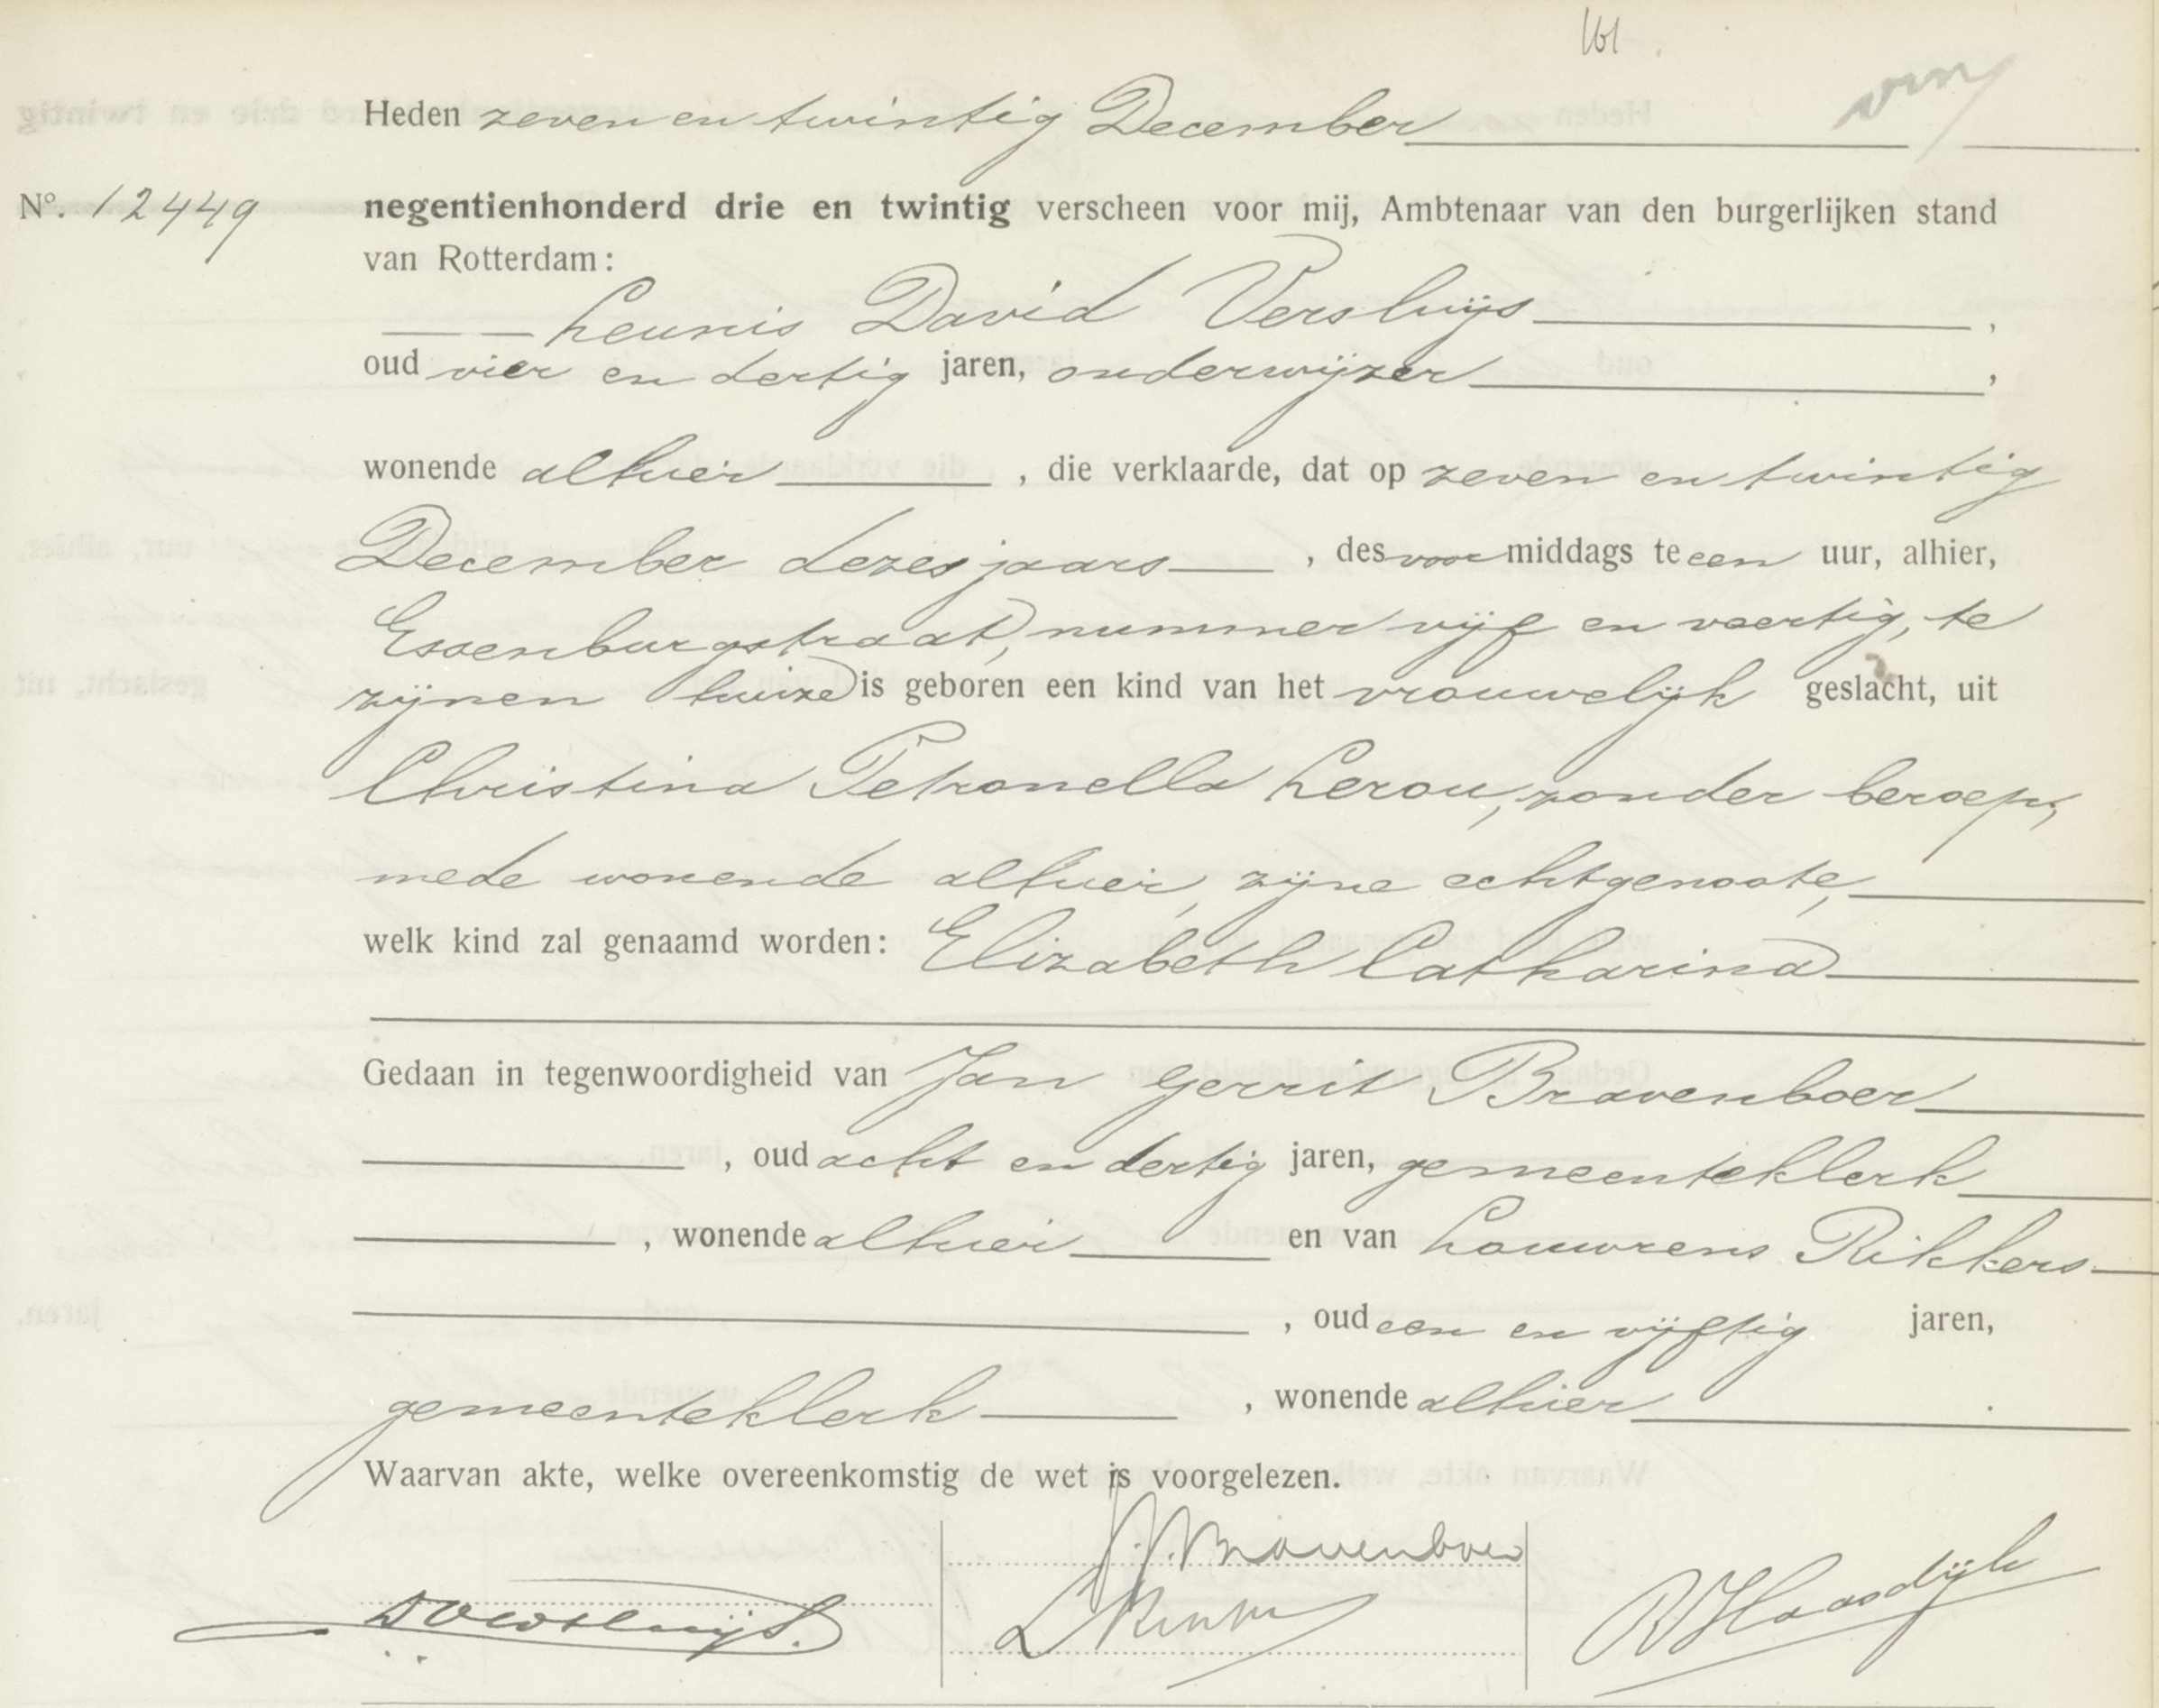 161.
Heden zeven en twintig December
Nº. 12449 negentienhonderd drie en twintig verscheen voor mij, Ambtenaar van den burgerlijken stand
van Rotterdam:
Leunis David Versluijs,
oud vier en dertig jaren, onderwijzer,
wonende alhier, die verklaarde, dat op zeven en twintig
December dezes jaars, des voormiddags te een uur, alhier,
Essenburgstraat, nummer vijf en veertig, te
zijnen huize is geboren een kind van het vrouwelijk geslacht, uit
Christina Petronella Lerou, zonder beroep,
mede wonende alhier, zijne echtgenoote,
welk kind zal genaamd worden: Elizabeth Catharina
Gedaan in tegenwoordigheid van Jan Gerrit Bravenboer
, oud acht en dertig jaren, gemeenteklerk
, wonende alhier en van Louwrens Rikkers
, oud een en vijftig jaren,
gemeenteklerk, wonende alhier.
Waarvan akte, welke overeenkomstig de wet is voorgelezen.
J.G. Bravenboer